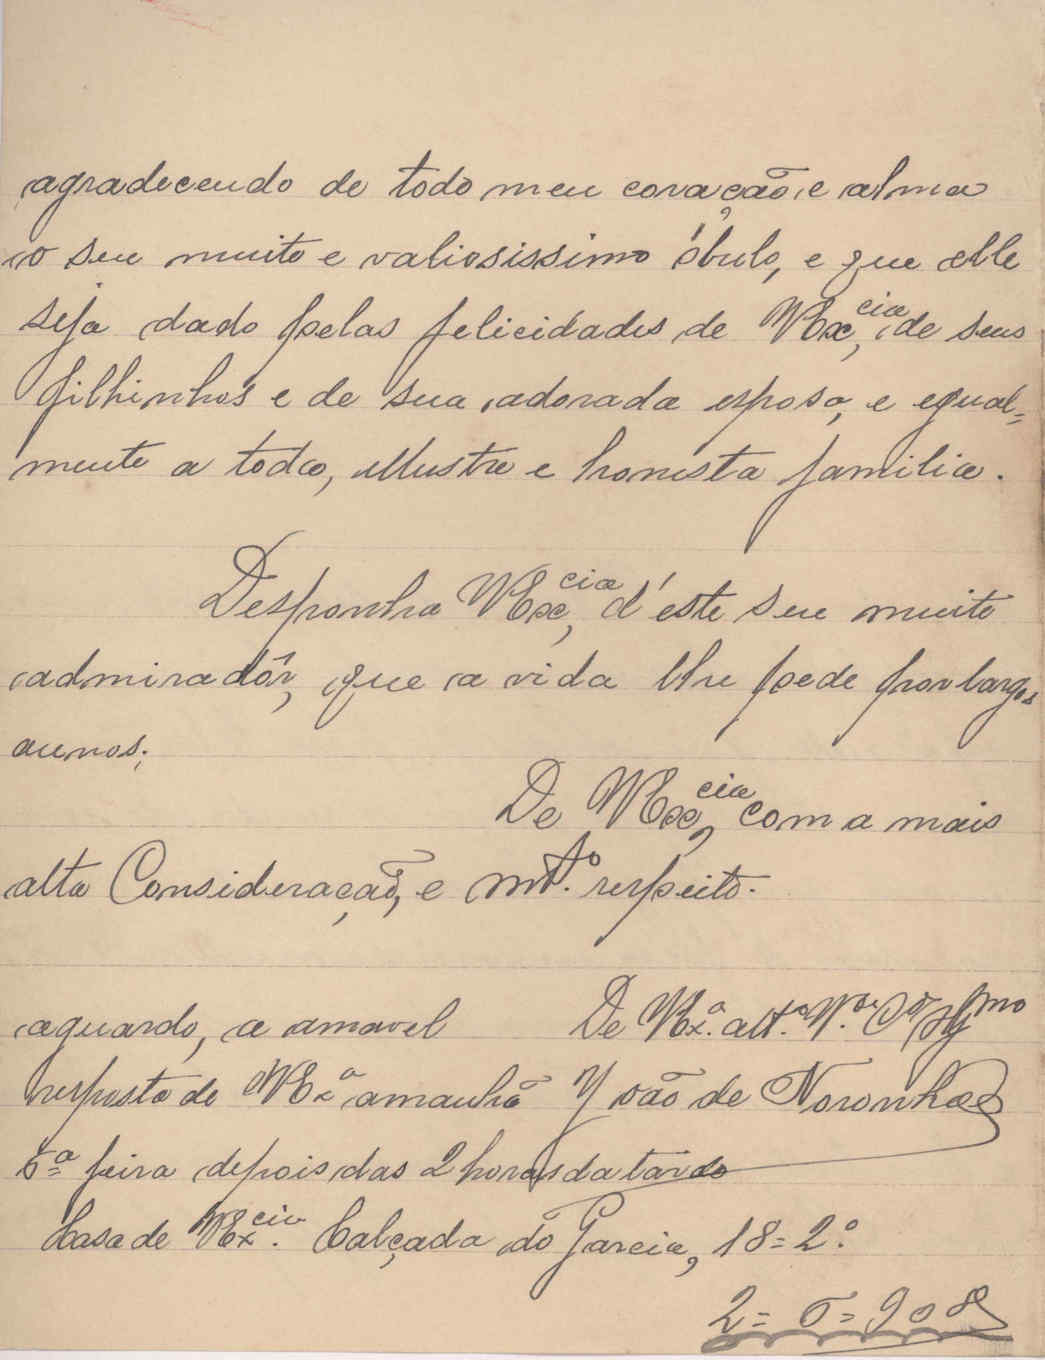 agradecendo de todo meu coração, e alma
o seu muito e valiosissimo óbulo, e que elle
seja dado pelas felicidades de V Ex.cia, de seus
filhinhos e de sua adorada esposa, e egual=
mente a toda, illustre e honesta familia.
Desponha V Ex.cia, d'este seu muito
admiradôr, que a vida lhe pede por largos
annos;
De V Ex.cia, com a mais
alta Consideração, e mt.º respeito.
aguardo, a amavel
resposta de V Ex.ª amanhã
6ª feira depois das 2 horas da tarde
Casa de V Ex.cia. Calçada do Garcia, 18=2.º
De V Ex.ª att.º V.or
João de Noronha
2= 5=908